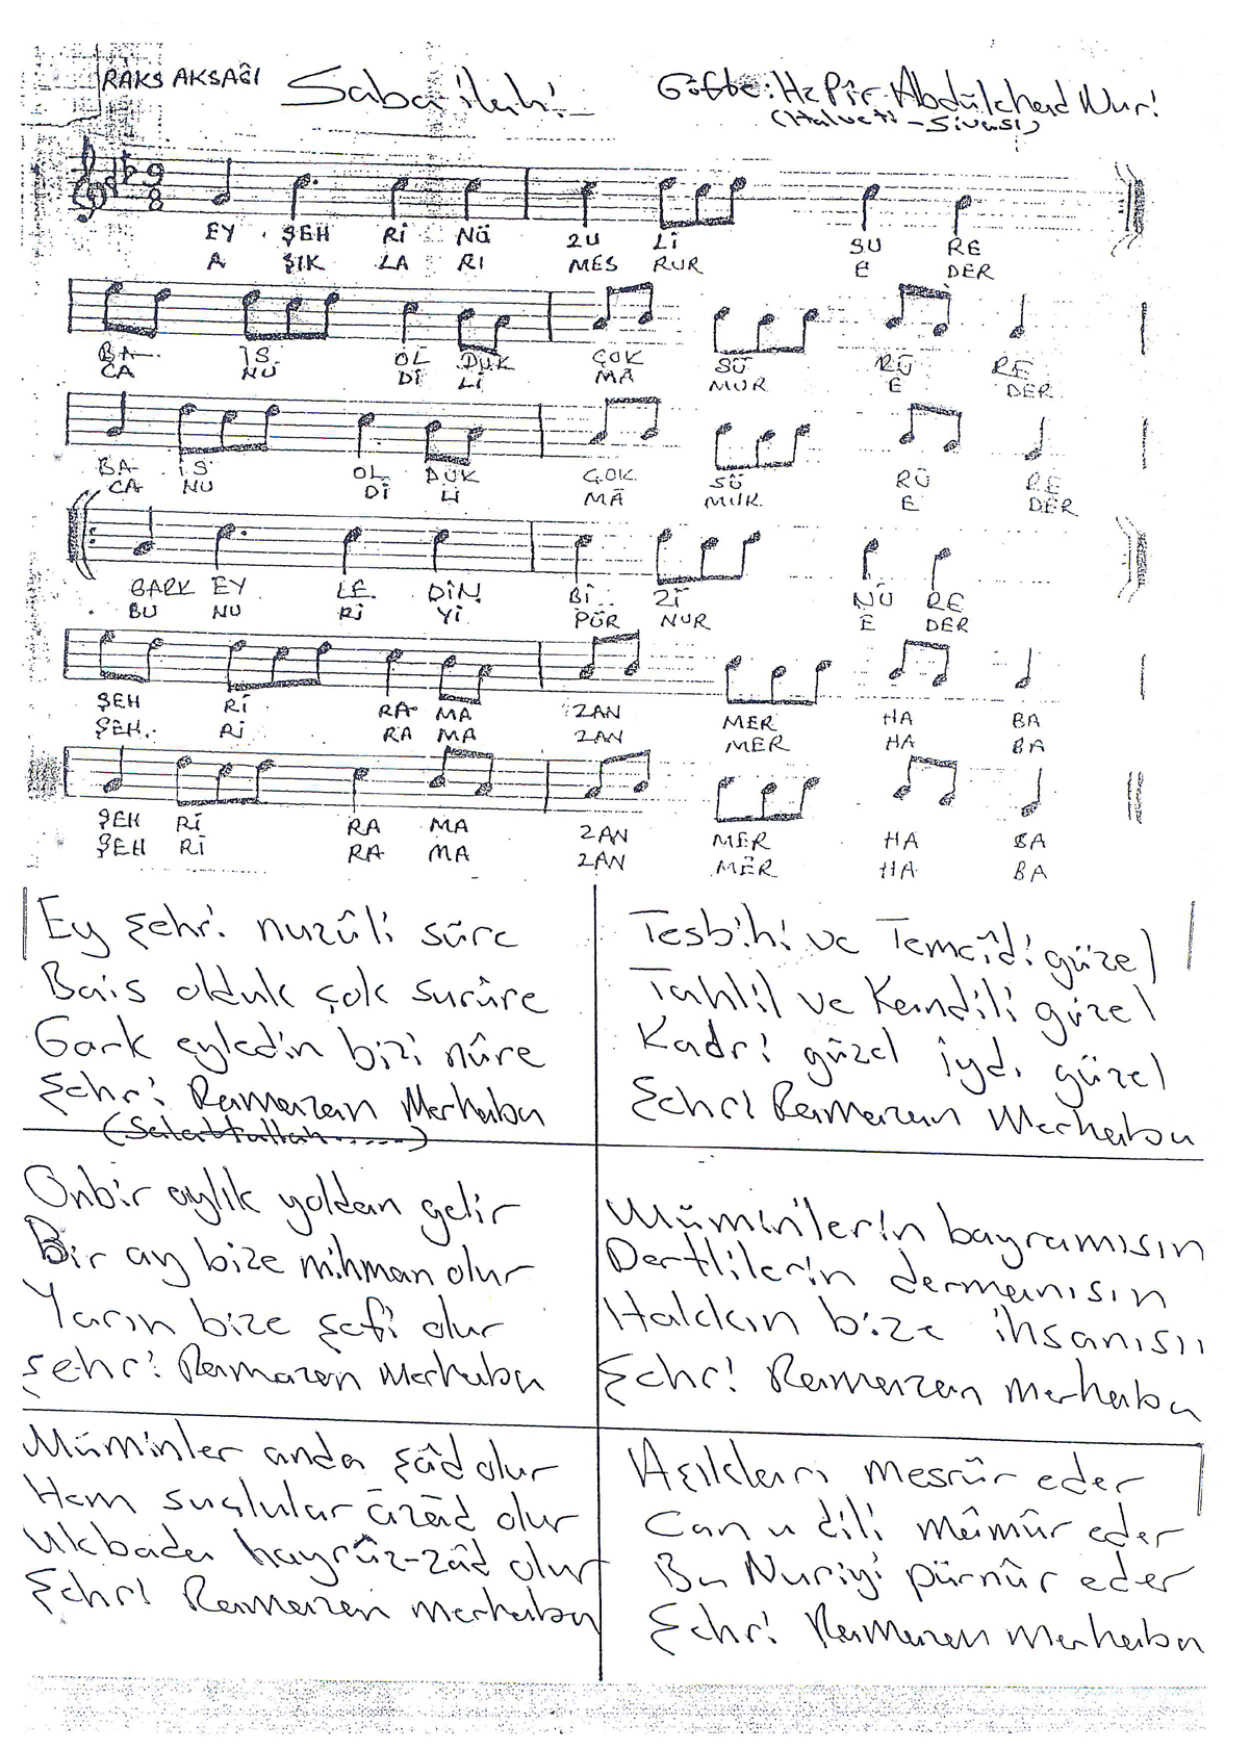 RAKS AKSAĞI Saba ilahi Güfte: Hz Pîr Abdülehad Nuri
(Halveti - Sivasi)
9
8
EY ŞEH Rİ NÜ ZU Lİ SU RE
A ŞIK LA RI MES RUR E DER
BA İS OL DUK ÇOK SÜ RÜ RE
CA NU Dİ Lİ MÂ MUR E DER
BA İS OL DUK ÇOK SÜ RÜ RE
CA NU Dİ Lİ MÂ MUR E DER
GARK EY LE DİN Bİ Zİ NÜ RE
BU NU Rİ Yİ PÜR NUR E DER
ŞEH Rİ RA MA ZAN MER HA BA
ŞEH Rİ RA MA ZAN MER HA BA
ŞEH Rİ RA MA ZAN MER HA BA
ŞEH Rİ RA MA ZAN MER HA BA
Ey Şehri nuzûli sûre
Bais olduk çok surûre
Gark eyledin bizi nûre
Şehri Ramazan Merhaba
(Salatullah.....)
Onbir aylık yoldan gelir
Bir ay bize mihman olur
Yarın bize şefi olur
Şehri Ramazan Merhaba
Müminler anda şâd olur
Hem suçlular âzâd olur
Ukbada hayrûz-zâd olur
Şehri Ramazan merhaba
Tesbihi ve Temcîdi güzel
Tahlil ve Kandili güzel
Kadri güzel iydi güzel
Şehri Ramazan Merhaba
Müminlerin bayramısın
Dertlilerin dermanısın
Hakkın bize ihsanısı
Şehri Ramazan merhaba
Aşıkları mesrûr eder
Can u dili mâmûr eder
Bu Nuriyi pürnûr eder
Şehri Ramazan merhaba